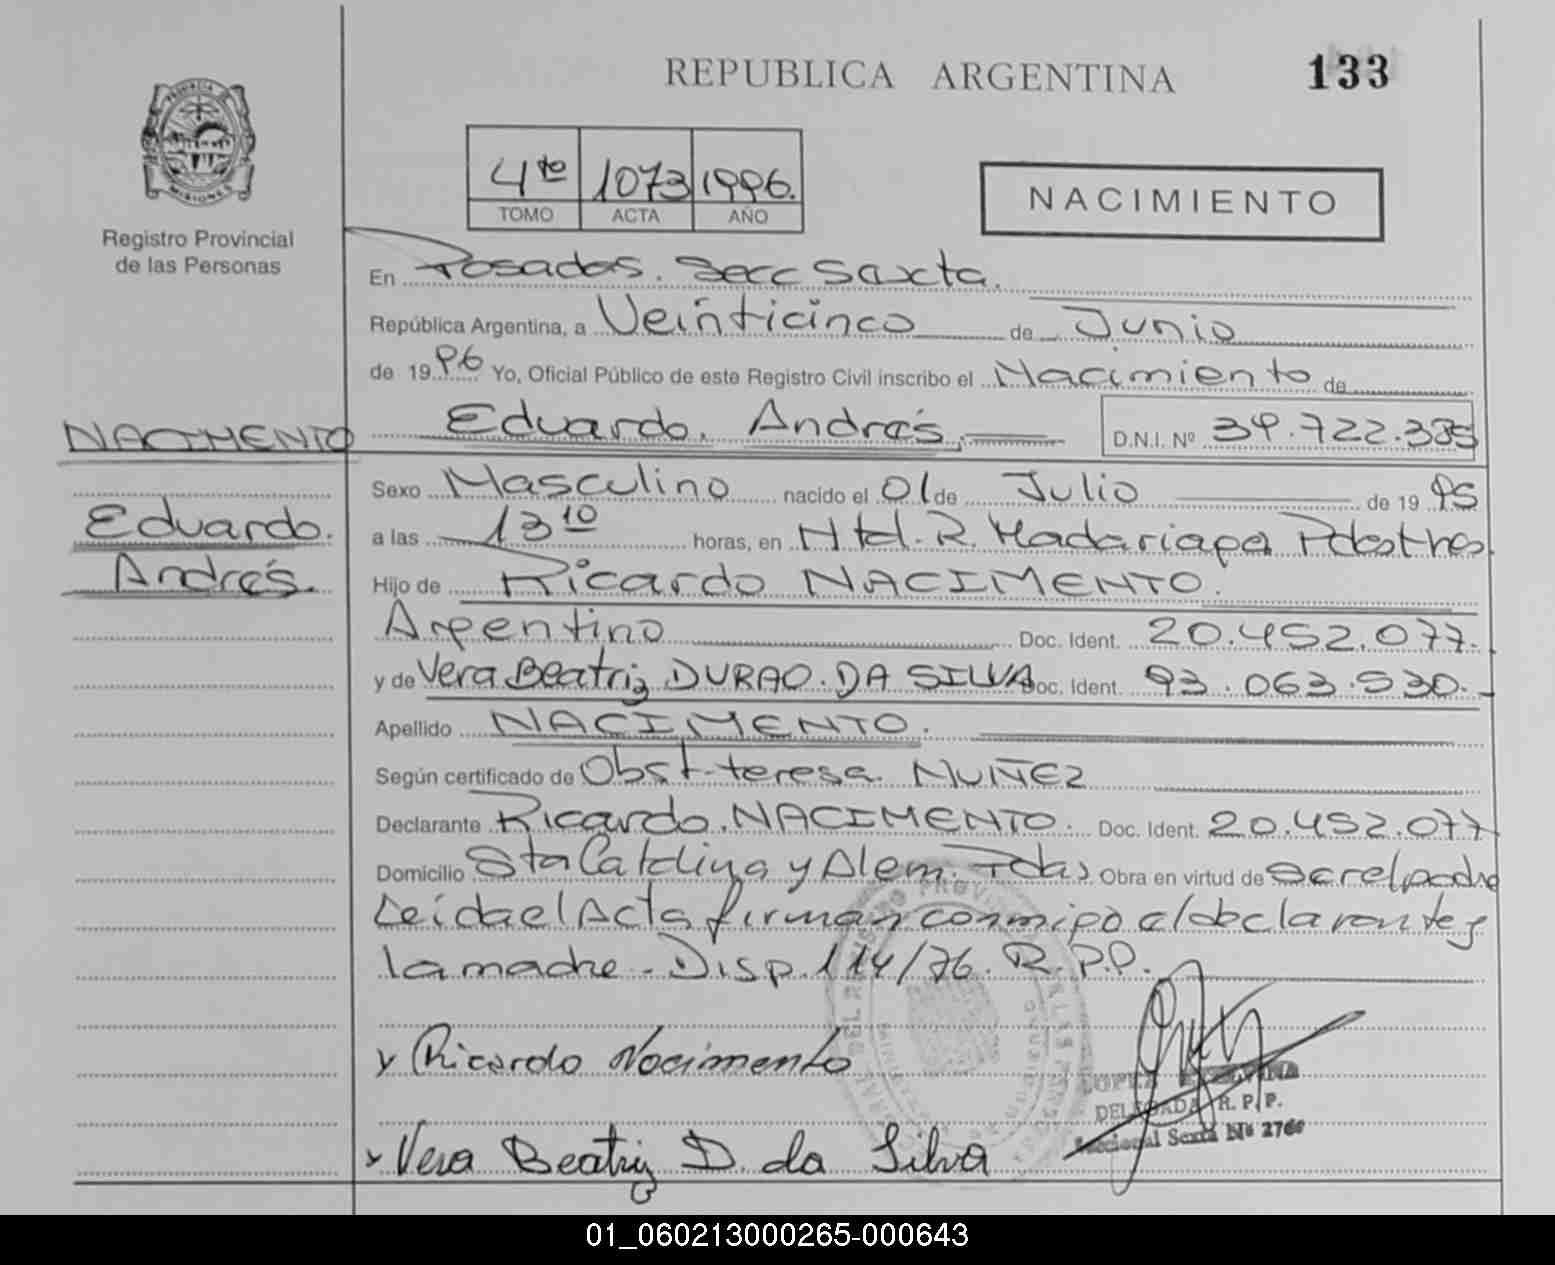 REPUBLICA ARGENTINA
133
PROVINCIA
MISIONES
Registro Provincial
de las Personas
4to 1073 1996.
TOMO ACTA AÑO
NACIMIENTO
En Posadas. Secc Sexta.
República Argentina, a Veinticinco de Junio
de 1996 Yo, Oficial Público de este Registro Civil inscribo el Nacimiento de
NACIMENTO
Eduardo. Andrés. D.N.I. Nº 39.722.385
Sexo Masculino nacido el 01 de Julio de 1995
Eduardo.
Andrés.
a las 13 10 horas, en Htal. R. Madariaga Pdas
Hijo de Ricardo NACIMENTO.
Argentino Doc. Ident. 20.452.077.
y de Vera Beatriz DURAO DA SILVA Doc. Ident. 93.063.530.
Apellido NACIMENTO.
Según certificado de Obst. teresa MUÑEZ
Declarante Ricardo NACIMENTO. Doc. Ident. 20.452.077
Domicilio Sta Catalina y Alem. Pdas Obra en virtud de Ser el padre
Leida el Acta firman conmigo el declarante y
la madre - Disp. 114/76. R.P.P.
x Ricardo Nacimento
LOPEZ
DELEGADA R. P. P.
Seccional Sexta Nº
x Vera Beatriz D. da Silva
01_060213000265-000643